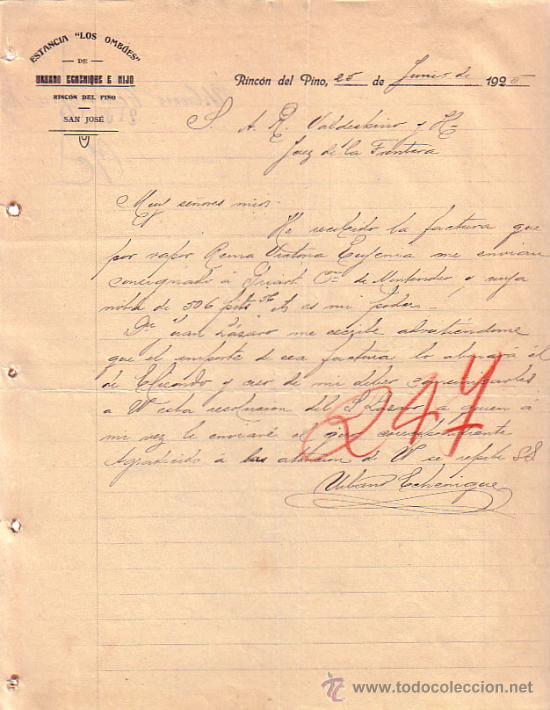 ESTANCIA "LOS OMBÚES"
DE
URBANO ECHENIQUE E HIJO
RINCÓN DEL PINO
SAN JOSÉ
Rincón del Pino, 25 de Junio de 1920
S. A. R. Valdespino y H
Jerez de la Frontera
Muy señores mios:
He recibido la factura que
por vapor Reina Victoria Eugenia me envian
consignado á Cia de Montevideo y cuya
de 506 es mi poder.
Dn Juan Lázaro me escribe
que el importe de esa factura lo abonará él
de y creo de mi deber
a V esta resolucion del S. Lázaro, a quien á
mi vez le enviaré el
Agradecido á las atencion de V se repite SS
Urbano Echenique
247
todocoleccion
www.todocoleccion.net